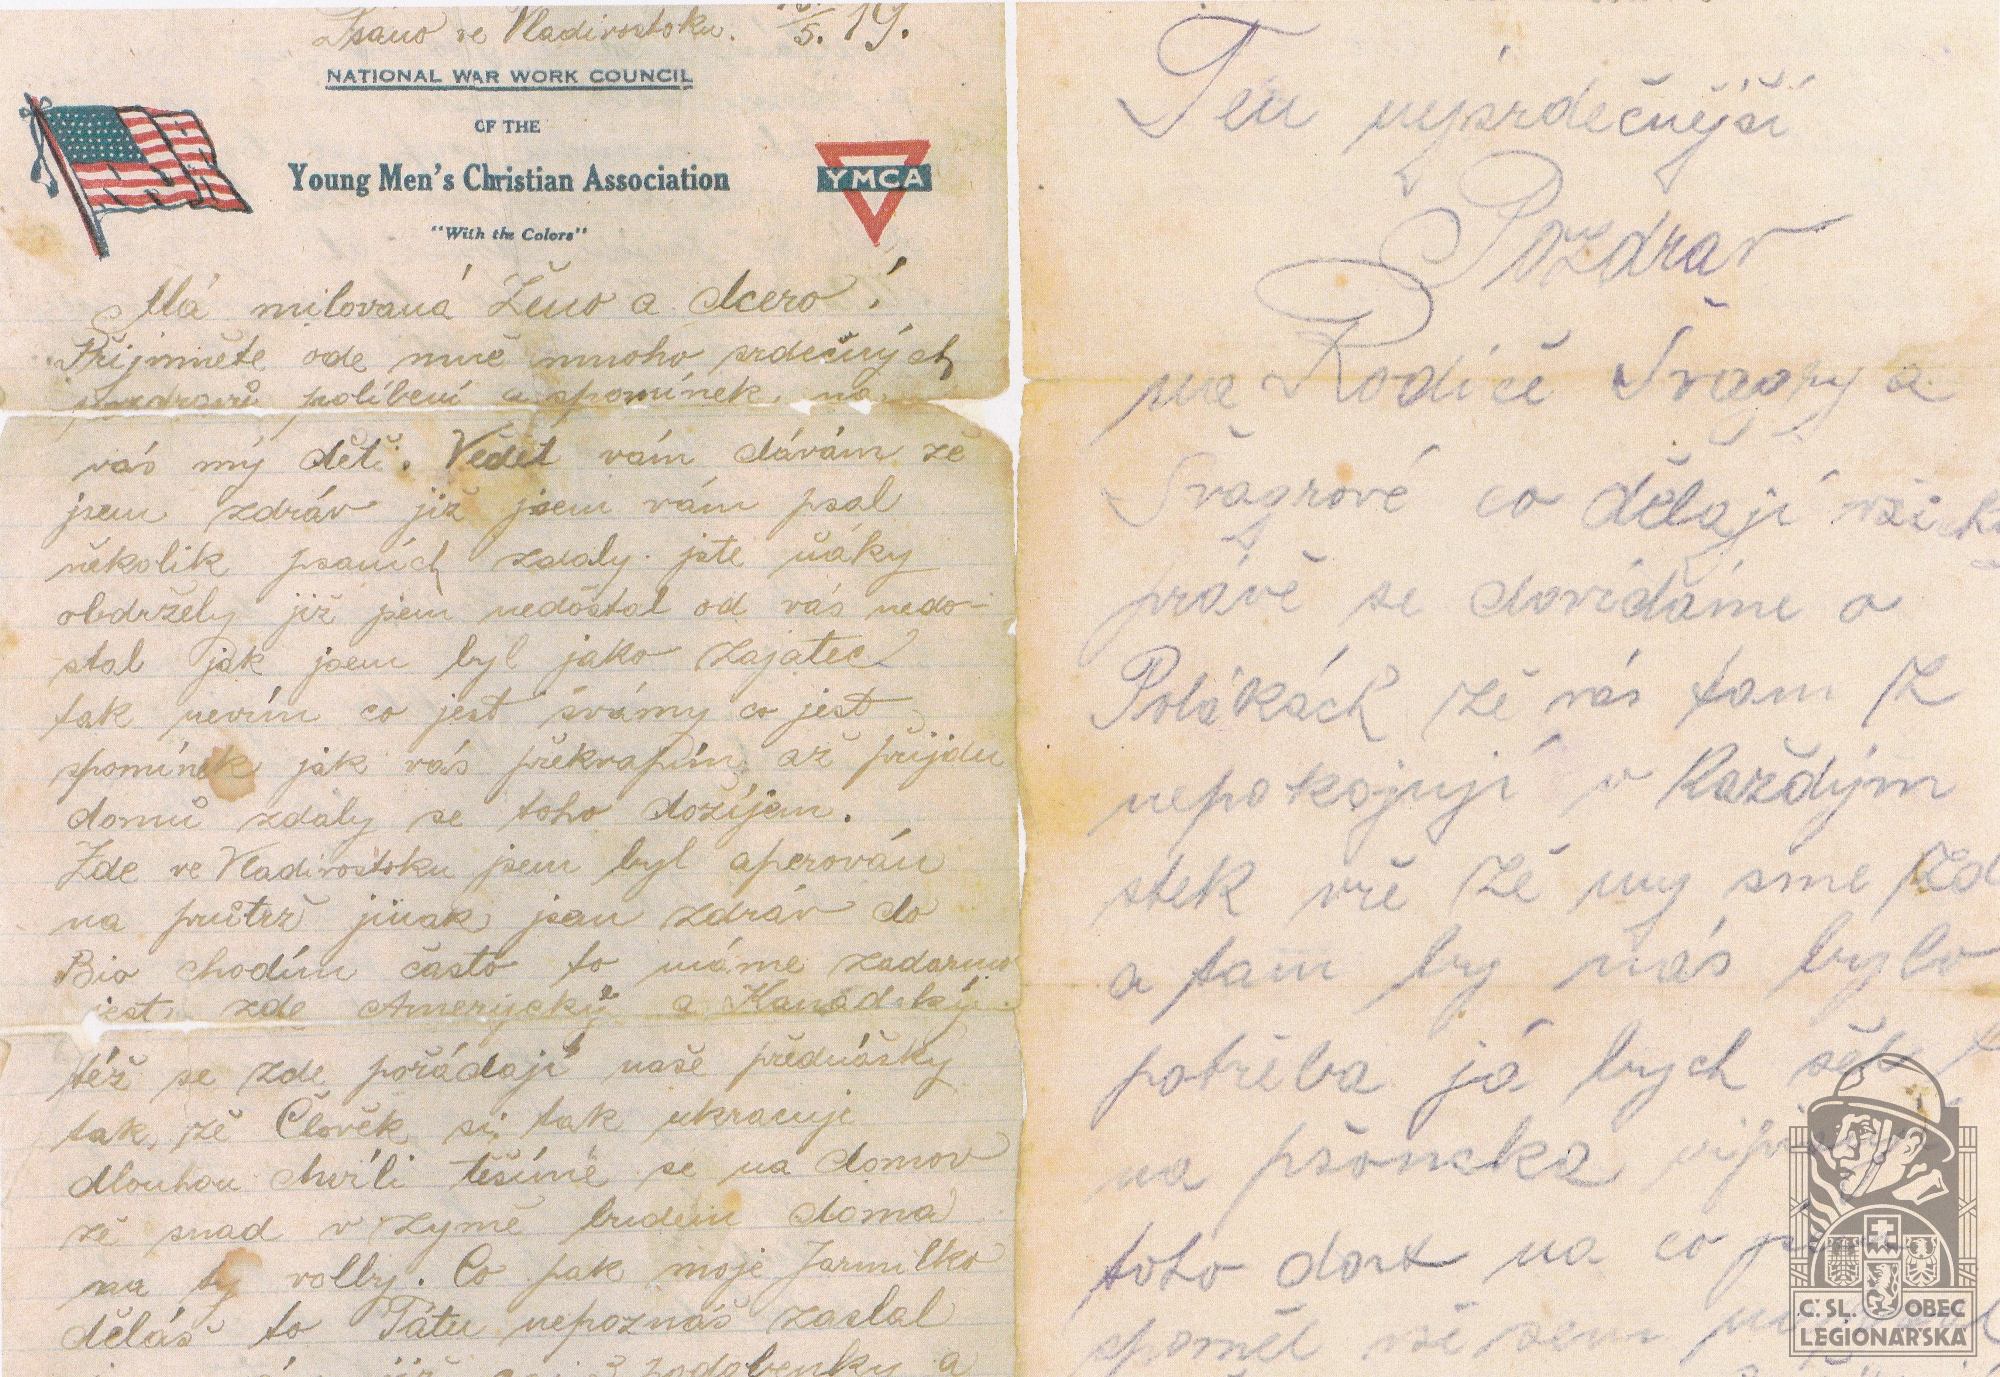 Psáno ve Vladivostoku. /5. 19.
NATIONAL WAR WORK COUNCIL
OF THE
Young Men's Christian Association
"With the Colors"
YMCA
Má milovaná Ženo a dcero!
Přijmněte ode mně mnoho srdečných
pozdravů políbení a spomínek. na
vás mý děti. Vědět vám dávám že
jsem zdráv již jsem vám psal
několik psaních zdaly jste ňáky
obdržely již jsem nedostal od vás nedo-
stal jak jsem byl jako zajatec
tak nevím co jest svámy co jest
spomínek jak vás překvapím až přijdu
domů zdály se toho dožijem.
Zde ve Vladivostoku jsem byl aperován
na průtrž jinak jsem zdráv do
Bio chodím často to máme zadarmo
jest zde Amerycký a Kanadský
též se zde pořádají naše přednášky
tak, že Člověk si tak ukracuje
dlouhou chvíli těšíme se na domov
že snad v zymě budem doma
na ty volby. Co pak moje Jarmilko
děláš to Tátu nepoznáš zaslal
podobenky a
Ten nejsrdečnější
Pozdrav
na Rodiče Švagry a
Švagrové co dělají
právě se dovídáme o
Polákách že vás tam z
nepokojují v každým
stek vře že my sme
a tam by nás bylo
potřeba já bych
na pšoncka
toho dost na co
spoměl
Č. SL. OBEC
LEGIONÁŘSKÁ